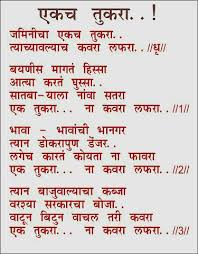 एकच तुकरा..!
जमिनीचा एकच तुकरा..
त्याच्यावल्याच कवरा लफरा..//धृ//
बयणीस मागतं हिस्सा
आत्या करतं घुस्सा..
सातबा-याला नांवा सतरा
एक तुकरा... ना कवरा लफरा..//1//
भावा - भावांची भानगर
त्यान डोकरापुण डेंजर..
लगेच कारतं कोयता ना फावरा
एक तुकरा... ना कवरा लफरा..//2//
त्यान बाजुवाल्याचा कब्जा
वरश्या सरकारचा बोजा..
वाटून बिटुन वाचल तरी कवरा
एक तुकरा... ना कवरा लफरा..//3//